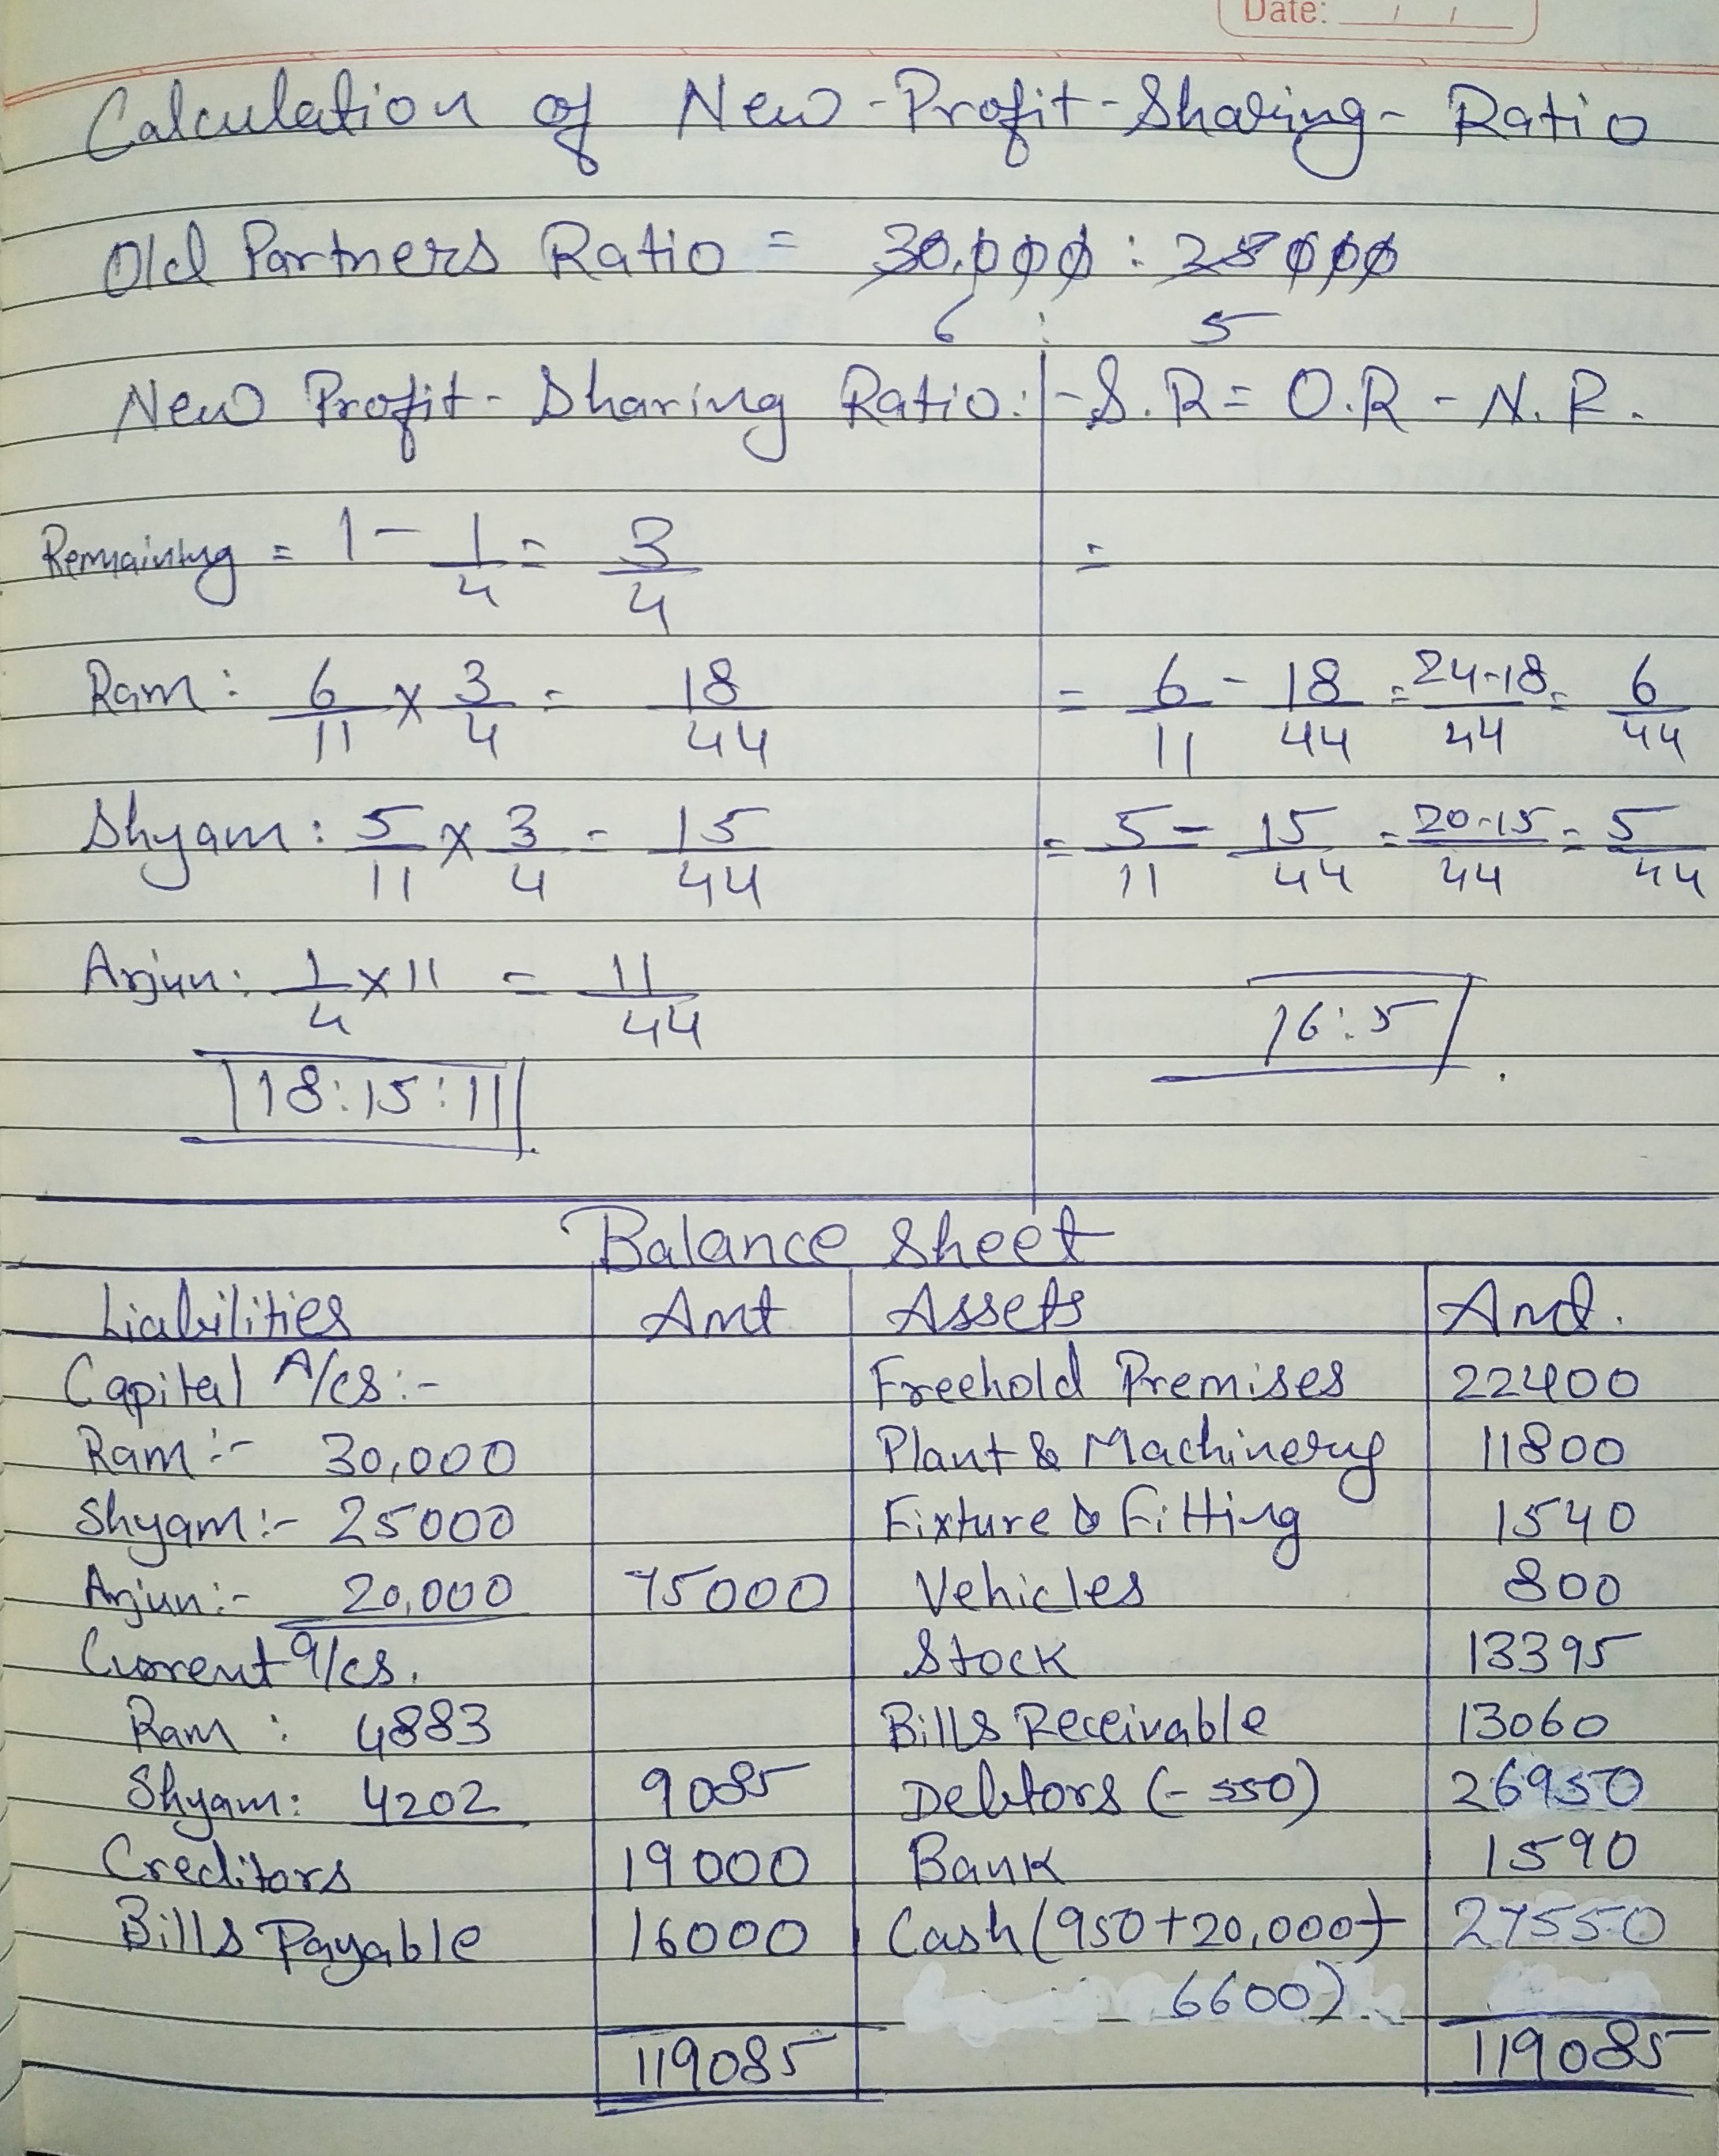 Date: / /
Calculation of New-Profit-Sharing-Ratio
Old Partners Ratio = 30,000 : 25000
6 : 5
New Profit-Sharing Ratio:- S.R = O.R - N.R.
Remaining = 1 - 1/4 = 3/4 =
Ram: 6/11 × 3/4 = 18/44 = 6/11 - 18/44 = 24-18/44 = 6/44
Shyam: 5/11 × 3/4 = 15/44 = 5/11 - 15/44 = 20-15/44 = 5/44
Arjun: 1/4 × 11 = 11/44
6:5
18:15:11
Balance Sheet
Liabilities Amt Assets Amt.
Capital A/cs:- Freehold Premises 22400
Ram:- 30,000 Plant & Machinery 11800
Shyam:- 25000 Fixture & Fitting 1540
Arjun:- 20,000 75000 Vehicles 800
Current a/cs. Stock 13395
Ram: 4883 Bills Receivable 13060
Shyam: 4202 9085 Debtors (-550) 26950
Creditors 19000 Bank 1590
Bills Payable 16000 Cash (950+20,000+ 27550
6600)
119085 119085